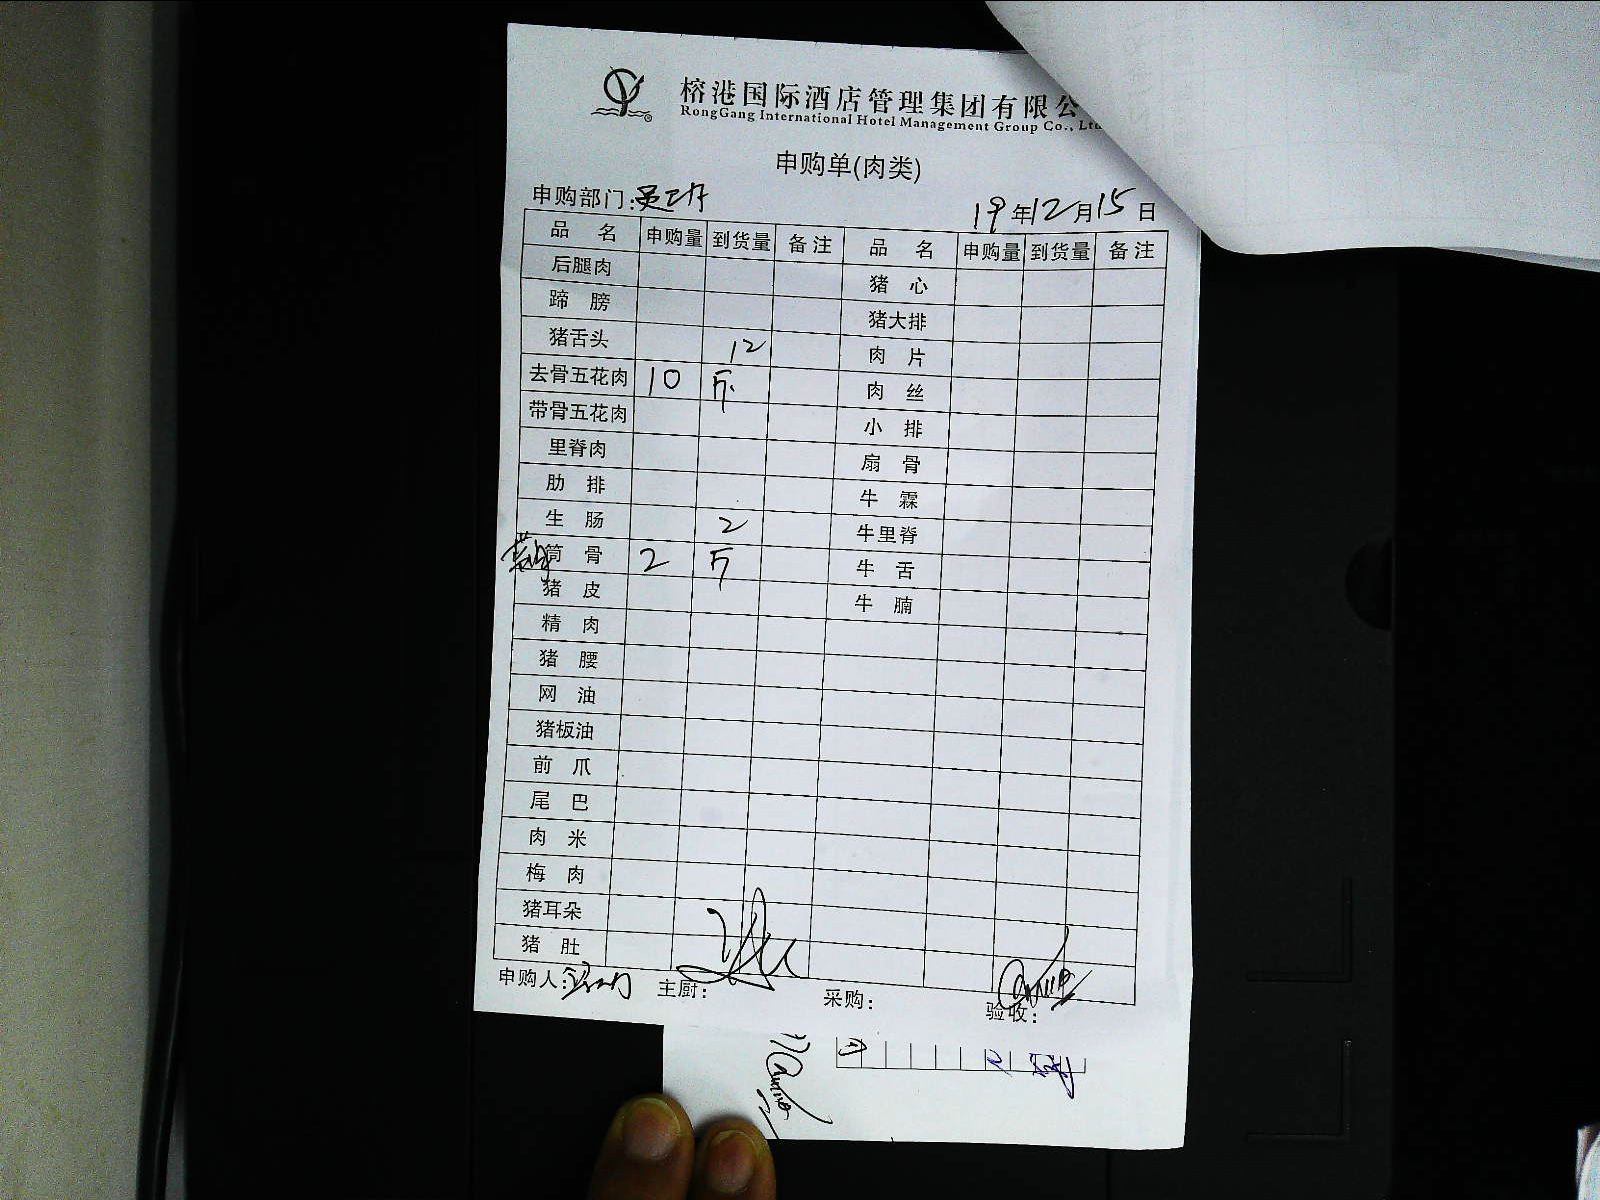 榕港国际酒店管理集团有限公
RongGang International Hotel Management Group Co., Ltd
申购单(肉类)
申购部门:
19年12月15日
品 名 申购量 到货量 备注 品 名 申购量 到货量 备注
后腿肉 猪 心
蹄 膀 猪大排
猪舌头 12 肉 片
去骨五花肉 10 斤 肉 丝
带骨五花肉 小 排
里脊肉 扇 骨
肋 排 牛 霖
生 肠 2 牛里脊
筒 骨 2 斤 牛 舌
猪 皮 牛 腩
精 肉
猪 腰
网 油
猪板油
前 爪
尾 巴
肉 米
梅 肉
猪耳朵
猪 肚
申购人: 主厨: 采购: 验收: